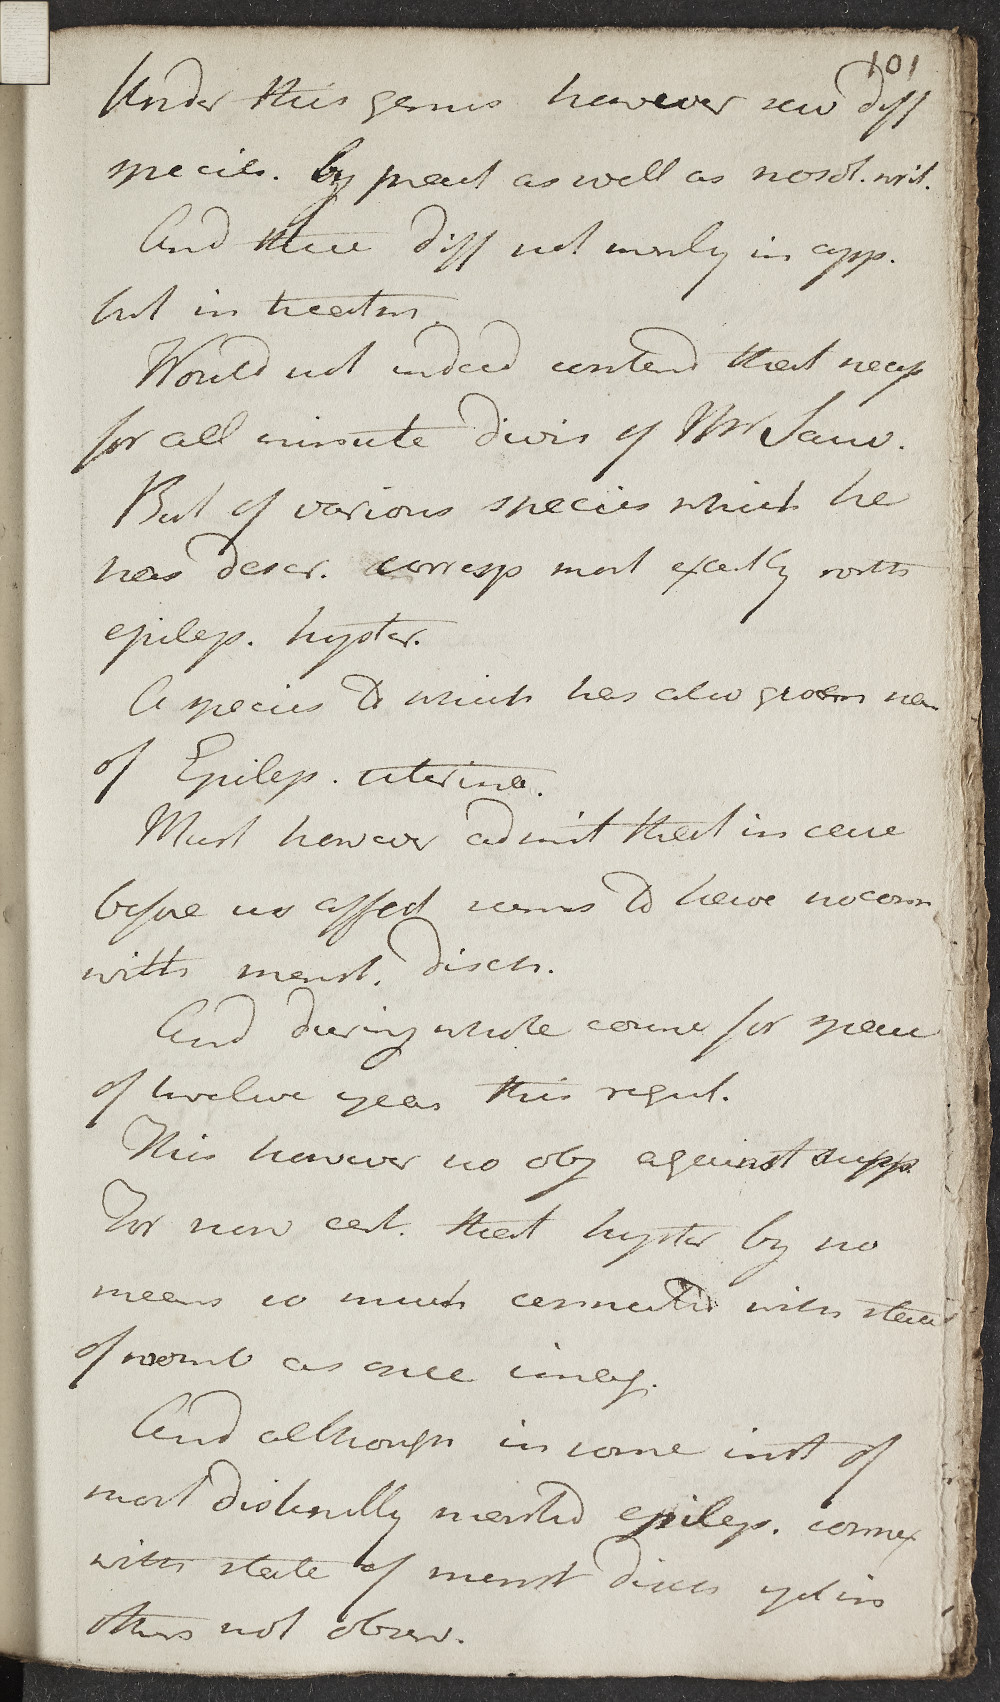 101
Under this genus however sev diff
species. by pract as well as nosol. writ.
And these diff not merely in app.
but in treatm.
Would not indeed contend that necess
for all minute divis of Mr Sauv.
But of various species which he
has descr. corresp most exactly with
epilep. hyster.
A species to which has also given nam
of Epilep. uterina.
Must however admit that in case
before us affect seems to have no conn
with menst. disch.
And during whole course for space
of twelve years this regul.
This however no obj against supp
For now cert. that hyster by no
means so much connected with state
of womb as once imag.
And although in some inst of
most distinctly marked epilep. connex
with state of menst disch yet in
others not observ.